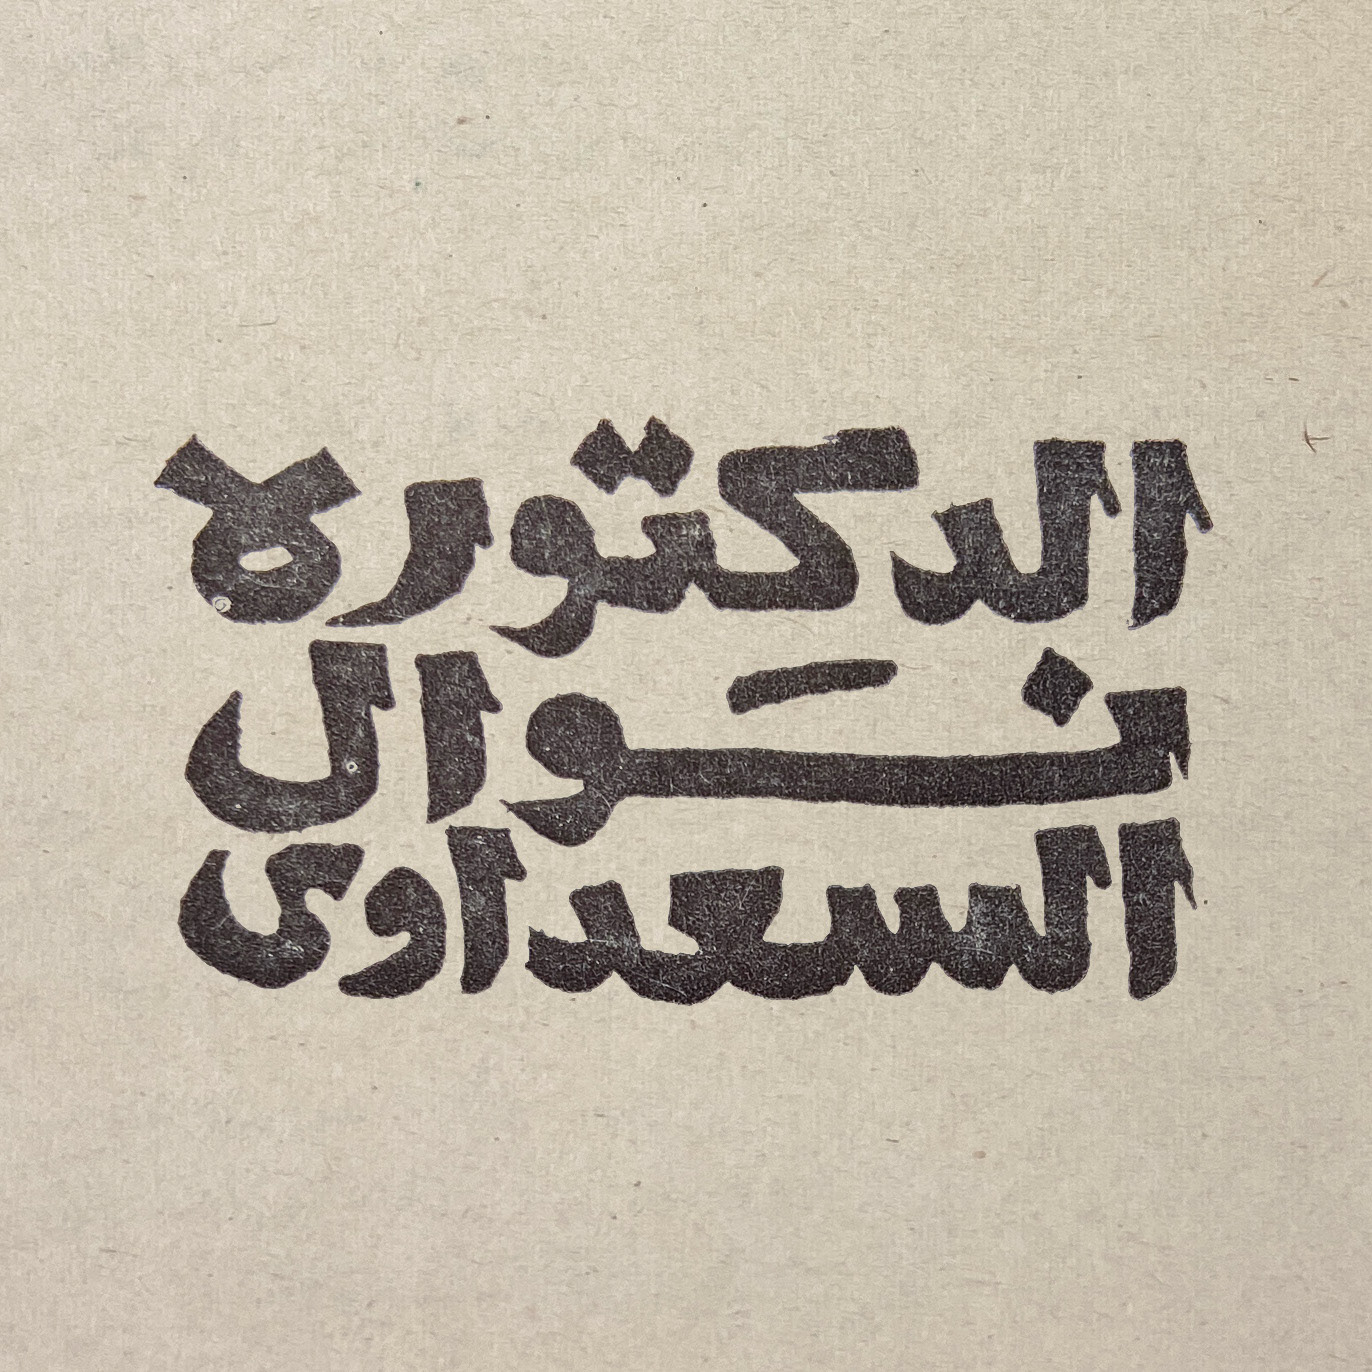 الدكتورة
نَوال
السعداوى